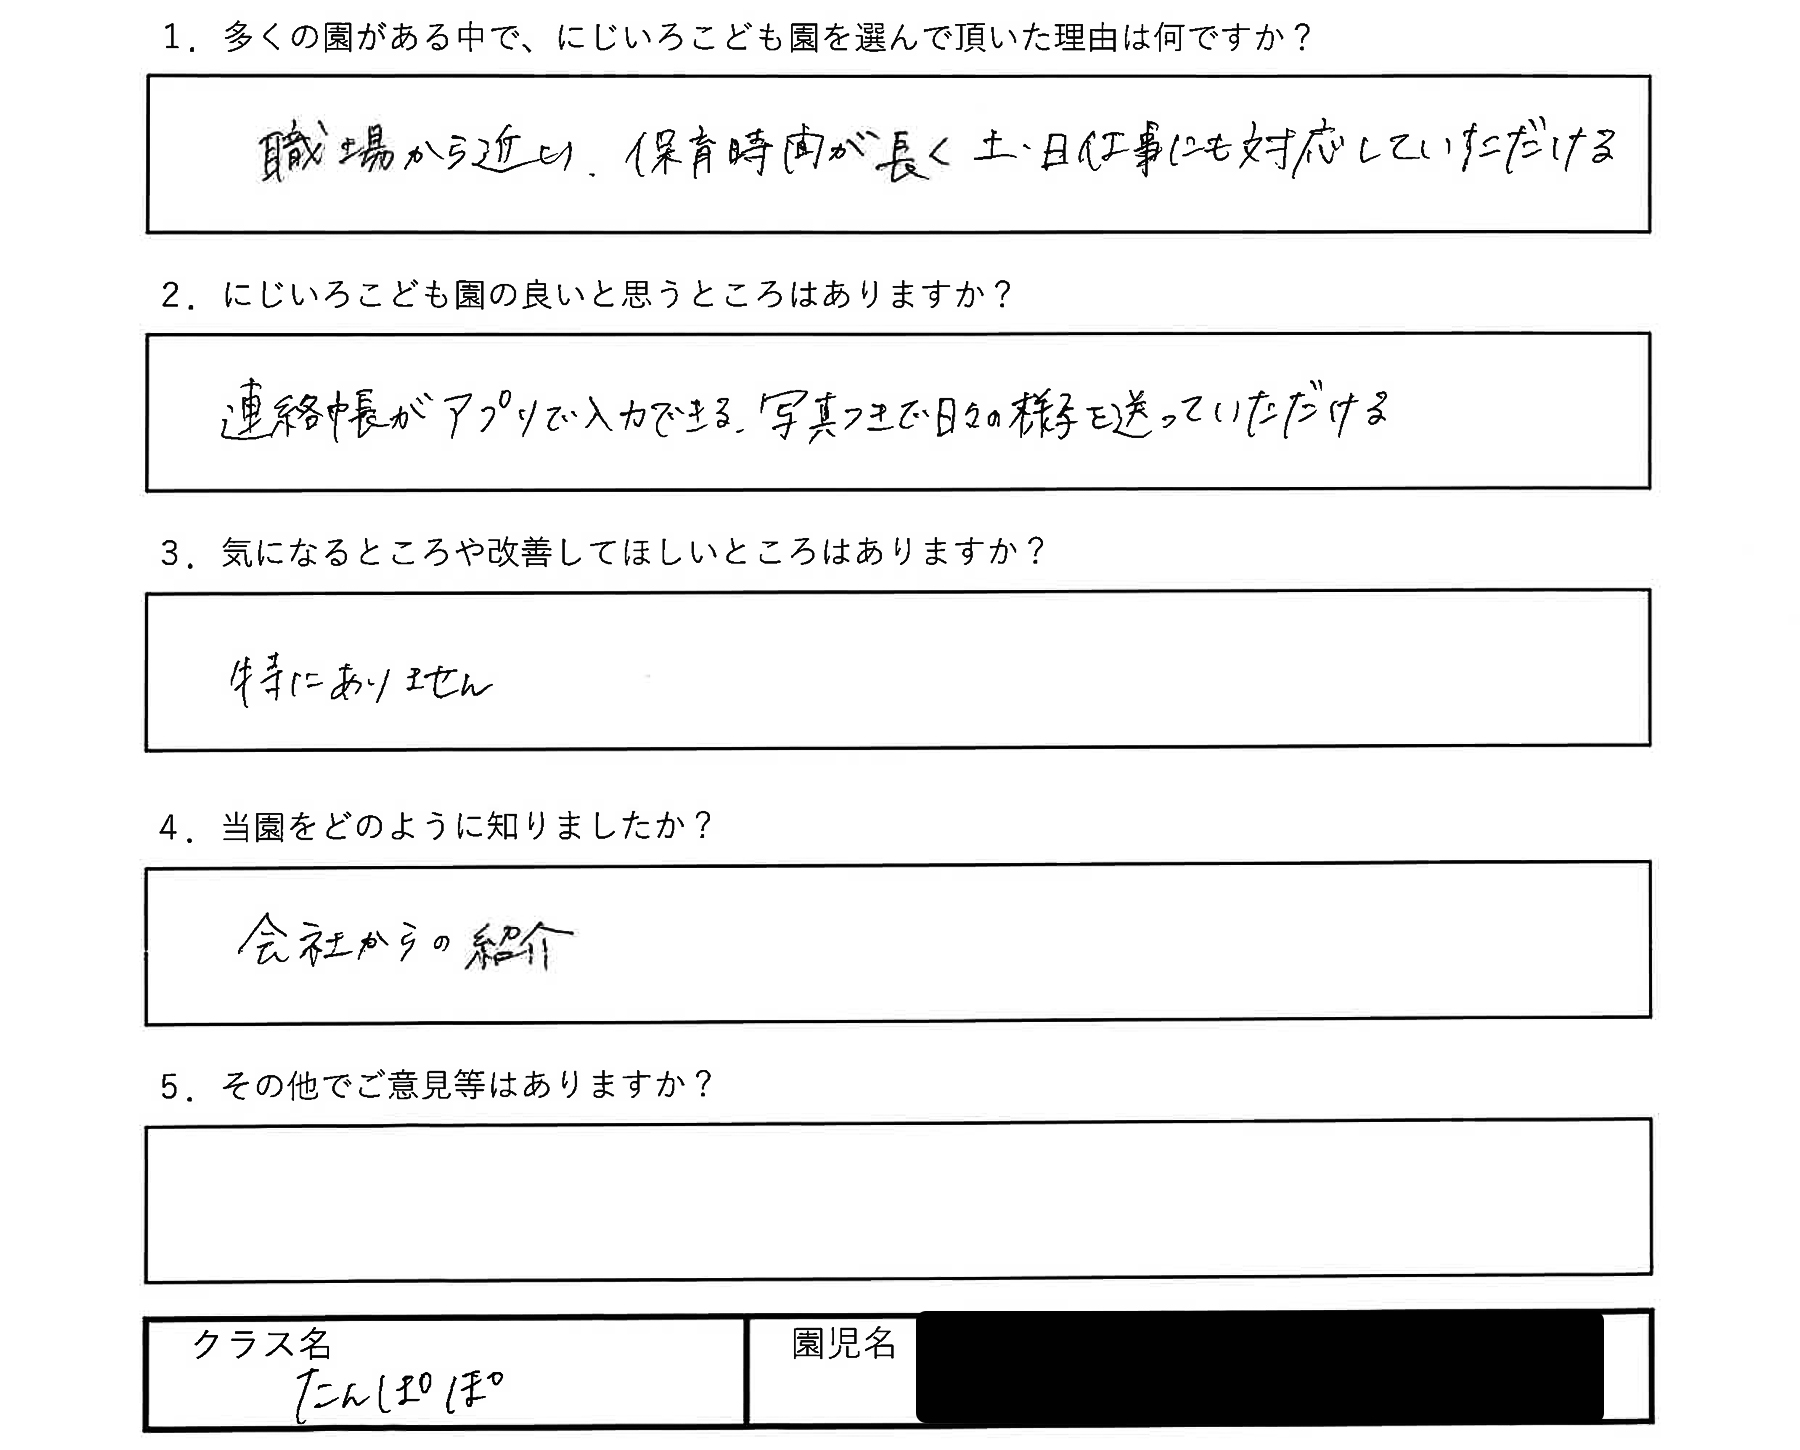 1．多くの園がある中で、にじいろこども園を選んで頂いた理由は何ですか？
職場から近い、保育時間が長く土・日仕事にも対応していただける
2．にじいろこども園の良いと思うところはありますか？
連絡帳がアプリで入力できる、写真つきで日々の様子を送っていただける
3．気になるところや改善してほしいところはありますか？
特にありません
4．当園をどのように知りましたか？
会社からの紹介
5．その他でご意見等はありますか？
クラス名
たんぽぽ
園児名